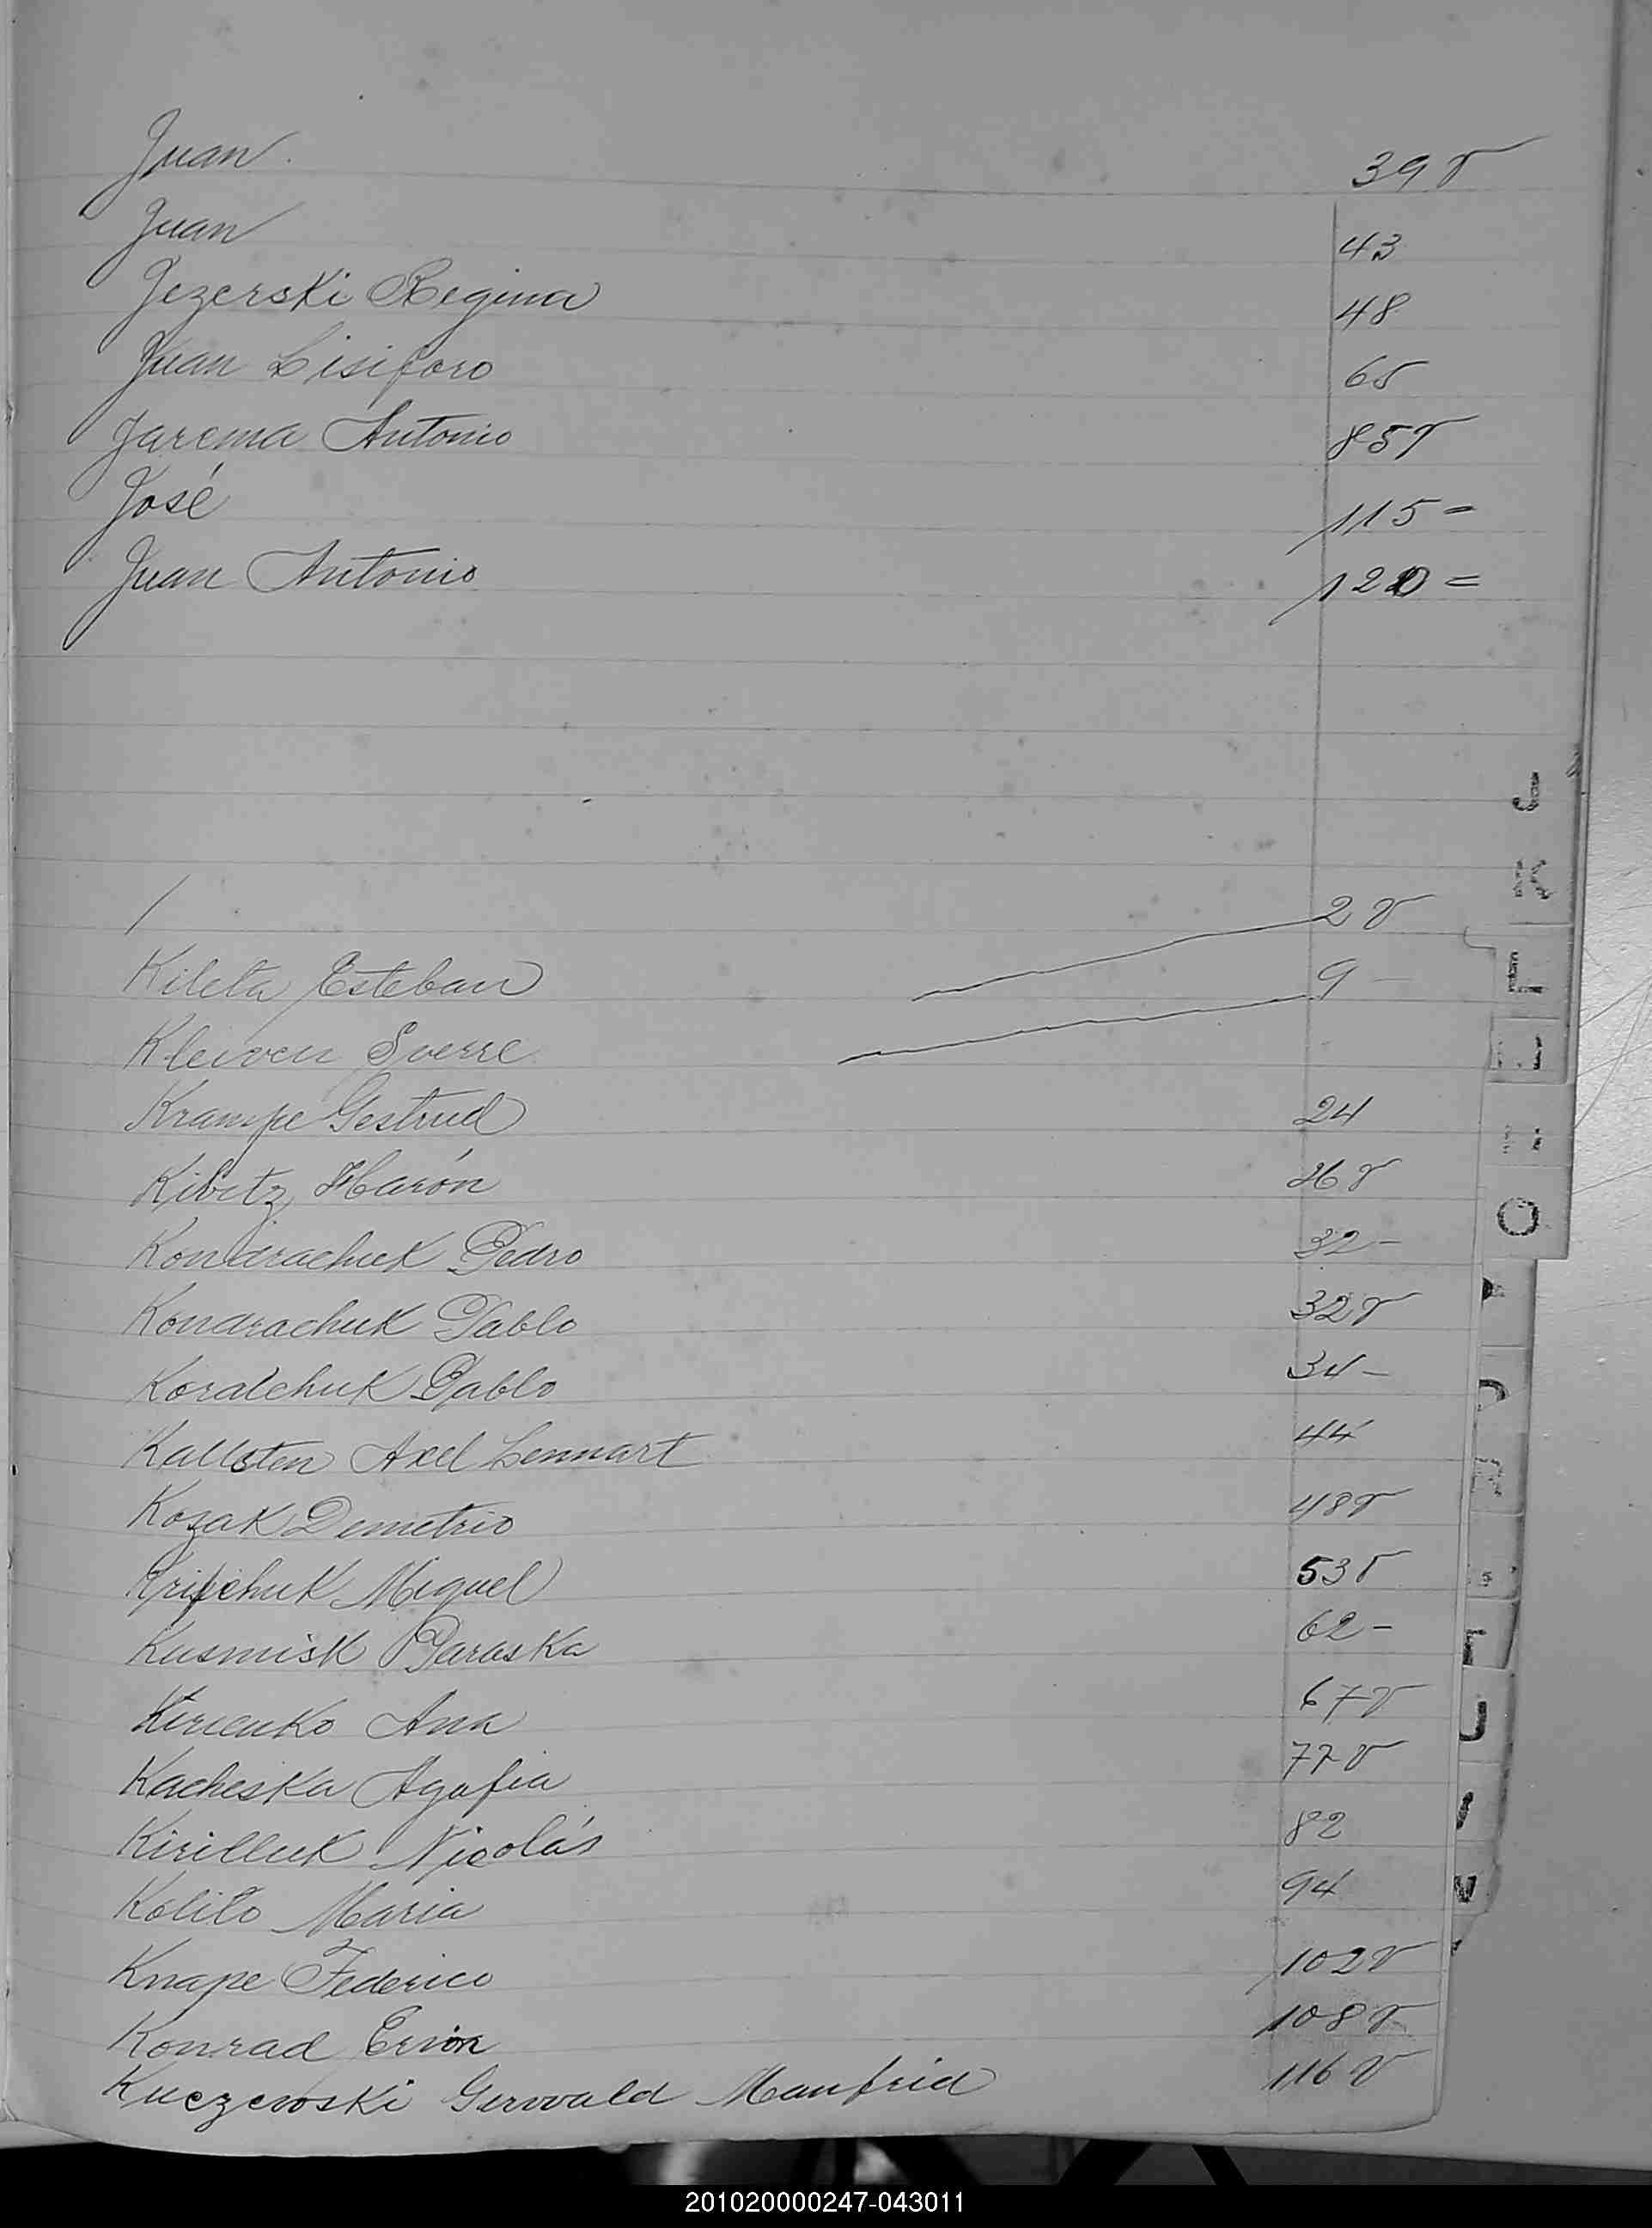 Juan 39 v
Juan 43
Jezerski Regina 48
Juan Lisiforo 65
Jarema Antonio 85 v
José 115 =
Juan Antonio 120 =
J
K
2 v
Kileta Esteban 9 -
Kleiven Sverre
Krampe Gertrud 24
Kibetz Harón 26 v
Kondrachuk Pedro 32 -
Kondrachuk Pablo 32 v
Koralchuk Pablo 34 -
Kallsten Axel Lennart 44
Kozak Demetrio 48 v
Miguel 53 v
Kusmisk Paraska 62 -
Kirienko Ana 67 v
Kacheska Agafia 77 v
Kirilluk Nicolás 82
Kolito Maria 94
Knape Federico 102 v
Konrad 108 v
Kuczewski Gerwald Manfrid 116 v
O
S
U
201020000247-043011